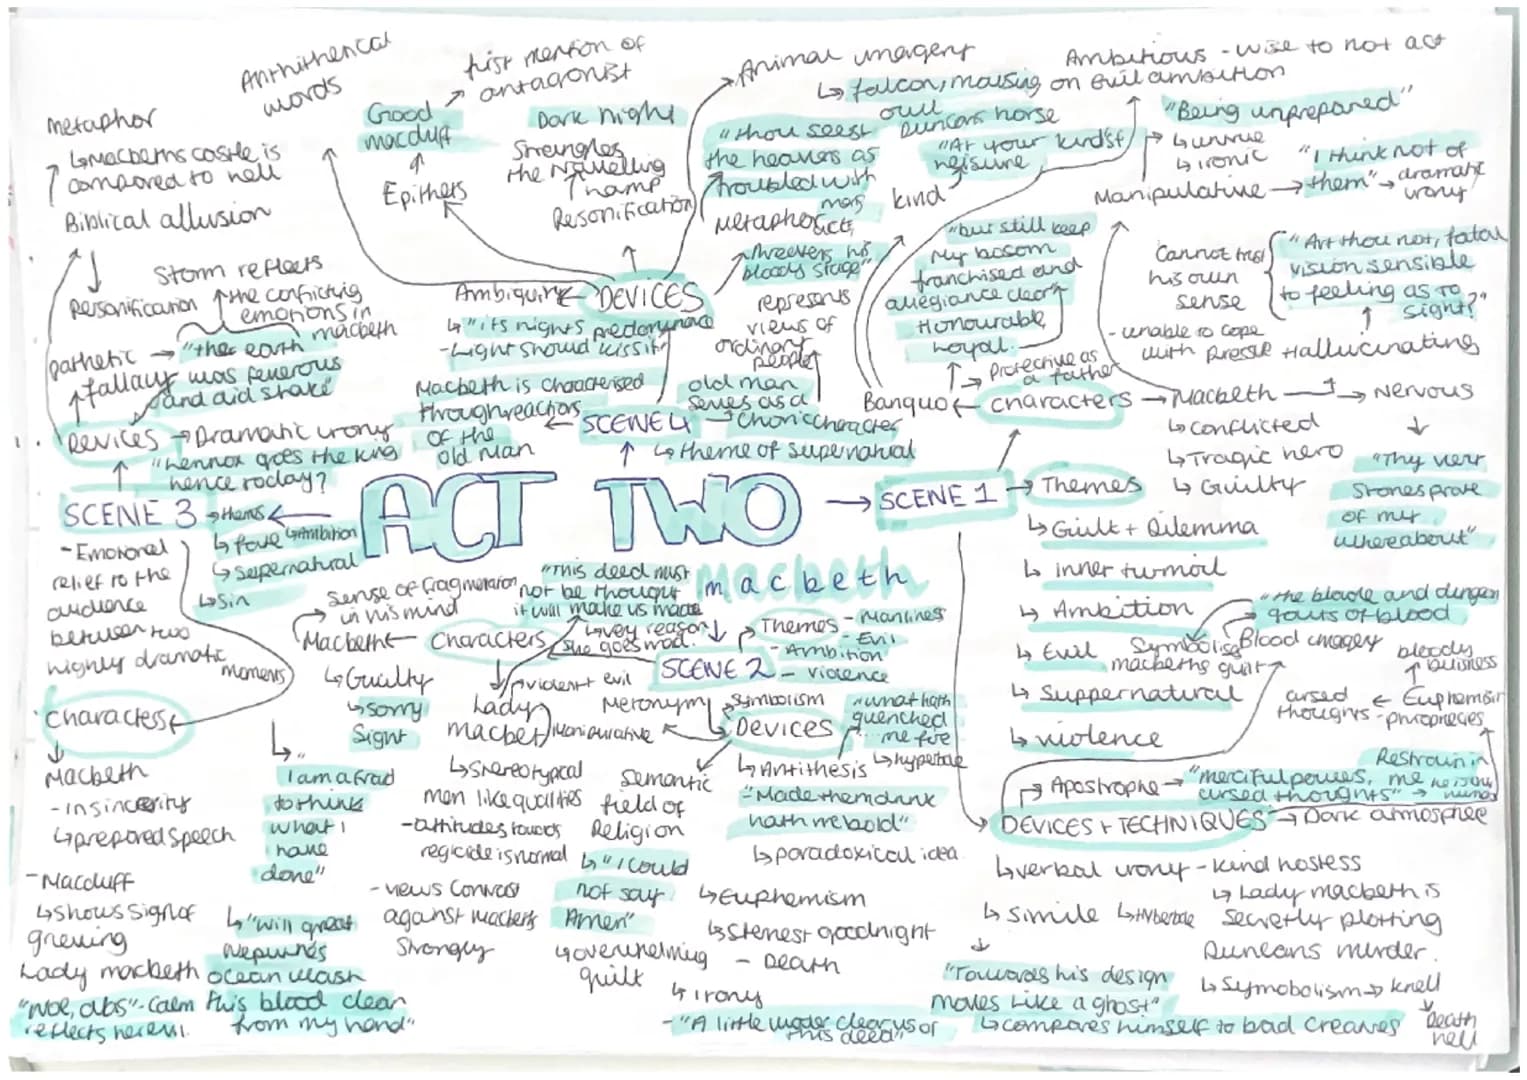 ACT TWO
macbeth
SCENE 1
characters
Banquo
Protective as
a father
Honourable
Loyal
"but still keep
My bosom
franchised and
allegiance clear"
kind
"At your kind'st
leisure
Ambitious - wise to not act
on evil ambition
Macbeth
Manipulative
"Being unprepared"
↳ untrue
↳ ironic
"I think not of
them" → dramatic
irony
Nervous
Hallucinating
"Art thou not, fatal
vision sensible
to feeling as to
sight?"
Cannot trust
his own
sense
- unable to cope
with pressure
↳ conflicted
↳ Tragic hero
↳ Guilty
"Thy very
Stones prate
of my
whereabout"
Themes
↳ Guilt + Dilemma
↳ inner turmoil
↳ Ambition
↳ Evil
↳ Suppernatural
↳ violence
DEVICES + TECHNIQUES → Dark atmosphere
Apostrophe → "merciful powers,
cursed thoughts"
Restrain in
me
"the blade and dungen
gouts of blood
Blood imagery
Symbolise
macbeths guilt
bloody
buisness
Euphemism
- prophecies
cursed
thoughts
↳ verbal irony - kind hostess
↳ Lady macbeth is
secretly plotting
Duncans murder.
↳ simile
"Towards his design
moves Like a ghost"
↳ compares himself to bad creatures
↳ Symobolism → knell
Death
hell
SCENE 2
Themes - Manliness
- Evil
- Ambition
- violence
Characters
Macbeth
sense of fragmeration
in his mind
↳ Guilty
↳ sorry
Sight
"This deed must
not be thought
it will make us made
↳ very reason
she goes mad.
Lady
macbeth
violent + evil
Manipulative
↳ Stereotypical
men like qualities
- attitudes towards
regicide is normal
- views Contrast
against macbeths
Strongly
Devices
Symbolism
Metonymy
"what hath
quenched
... me fire
↳ hyperbole
↳ Antithesis
"Made them drunk
hath me bold"
↳ paradoxical idea
Semantic
field of
Religion
↳ "I could
not say
Amen"
↳ overwhelming
guilt
↳ Euphemism
- Death
↳ irony
- "A little water clear us of
this deed"
↳ "
I am afraid
to think
what I
have
done"
↳ "will great
Nepunes
ocean wash
this blood clean
from my hand"
SCENE 3
↳ Ambition
↳ Sepernatural
↳ Sin
- Emotional
relief to the
audience
between two
highly dramatic
moments
Characters
Macbeth
- insincerity
↳ prepared speech
- Macduff
↳ shows sign of
Lady macbeth
reflects her evil.
Devices → Dramatic irony
"Lennox goes the king
hence today?
pathetic
fallacy
"the earth
was feverous
and did shake"
Storm reflects
the conflicting
emotions in
macbeth
Personification
Biblical allusion
↳ Macbeths castle is
compared to hell
Metaphor
SCENE 4
↳ theme of supernatual
old man
serves as a
Choric character
represents
views of
ordinary
people
Macbeth is characterised
through reactions
of the
old man
DEVICES
Ambiguity
↳ "its nights predominace
- Light should kiss it"
Anthitherical
words
Epithets
Good
macduff
first mention of
antagonist
Personification
Dark night
Strengles
the travelling
lamp
Animal imagery
↳ falcon, mousing
owl
Duncans horse
Metaphor
"thou seest
the heavens as
troubled with
mans
act,
threatens his
bloody stage"